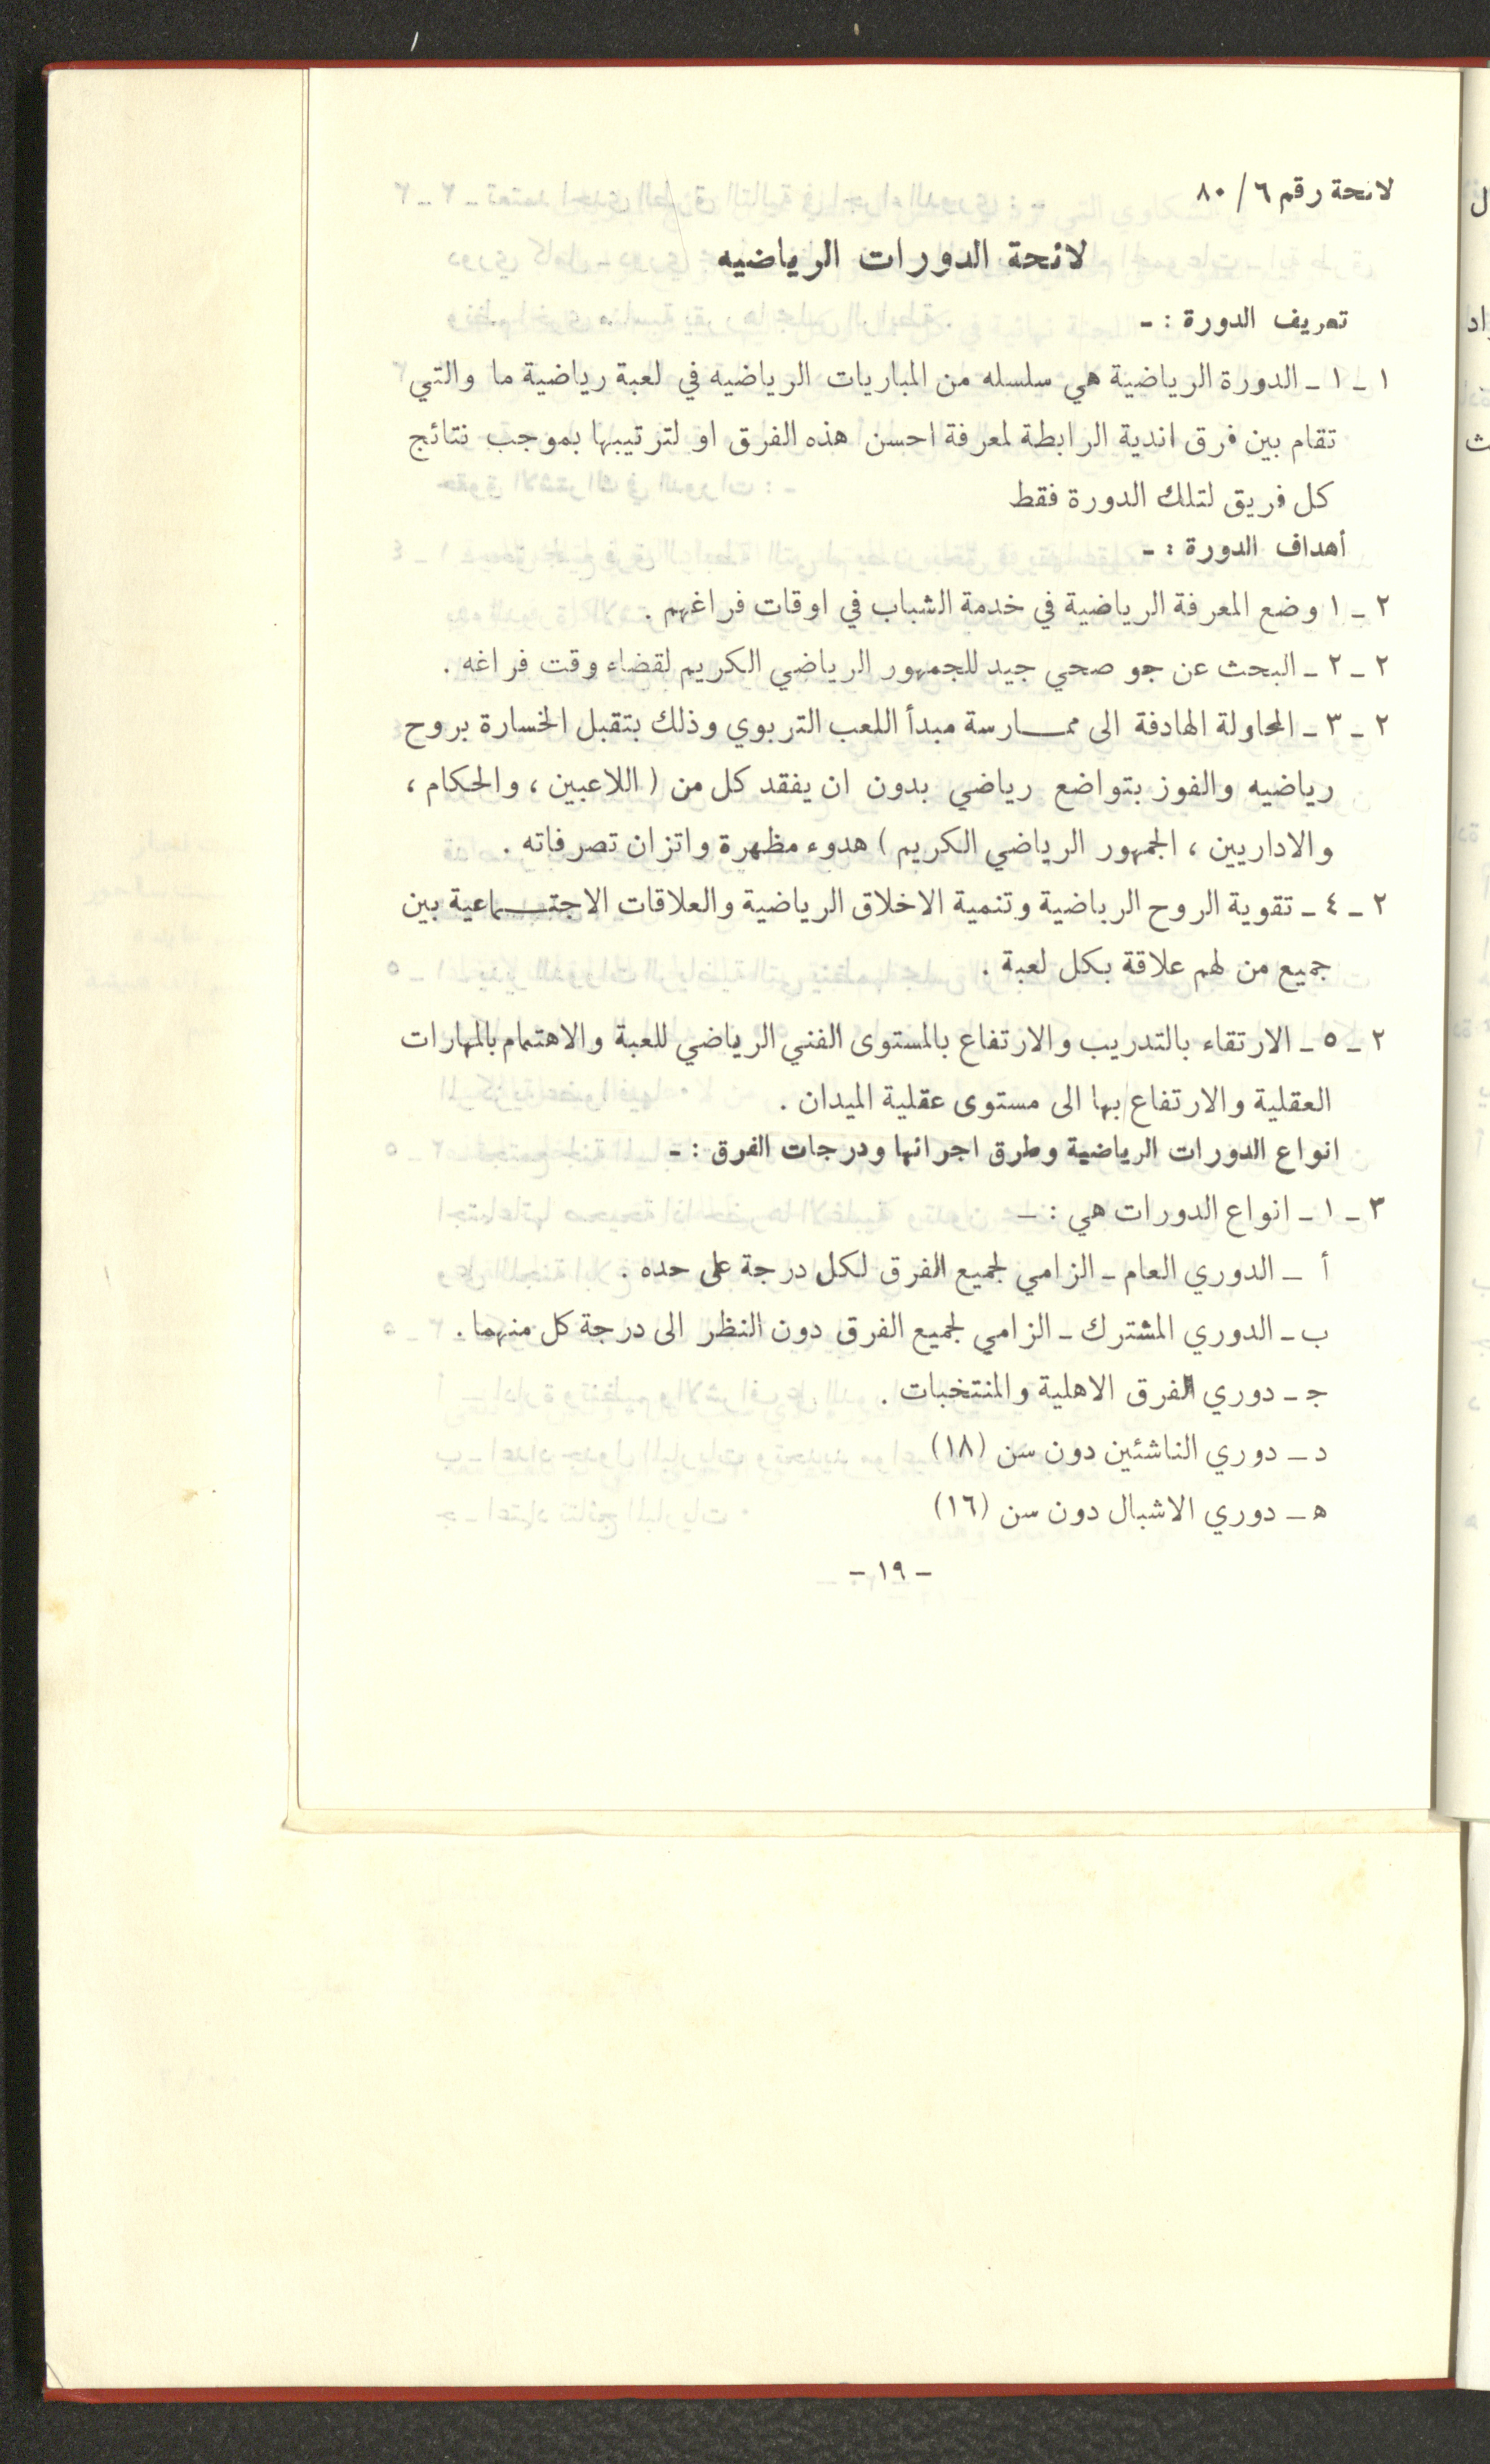 لائحة رقم ٦ / ٨٠
لائحة الدورات الرياضيه
تعريف الدورة : ـ
١ ـ ١ ـ الدورة الرياضية هي سلسله من المباريات الرياضيه في لعبة رياضية ما والتي
تقام بين فرق اندية الرابطة لمعرفة احسن هذه الفرق او لترتيبها بموجب نتائج
كل فريق لتلك الدورة فقط
أهداف الدورة : ـ
٢ ـ ١ وضع المعرفة الرياضية في خدمة الشباب في اوقات فراغهم .
٢ ـ ٢ ـ البحث عن جو صحي جيد للجمهور الرياضي الكريم لقضاء وقت فراغه .
٢ ـ ٣ ـ المحاولة الهادفة الى ممـــارسة مبدأ اللعب التربوي وذلك بتقبل الخسارة بروح
رياضيه والفوز بتواضع رياضي بدون ان يفقد كل من ( اللاعبين ، والحكام ،
والاداريين ، الجمهور الرياضي الكريم ) هدوء مظهرة واتزان تصرفاته .
٢ ـ ٤ ـ تقوية الروح الرياضية وتنمية الاخلاق الرياضية والعلاقات الاجتـــماعية بين
جميع من لهم علاقة بكل لعبة .
٢ ـ ٥ ـ الارتقاء بالتدريب والارتفاع بالمستوى الفني الرياضي للعبة والاهتمام بالمهارات
العقلية والارتفاع بها الى مستوى عقلية الميدان .
انواع الدورات الرياضية وطرق اجرائها ودرجات الفرق : ـ
٣ ـ ١ ـ انواع الدورات هي : ـ
أ ـ الدوري العام ـ الزامي لجميع الفرق لكل درجة على حده .
ب ـ الدوري المشترك ـ الزامي لجميع الفرق دون النظر الى درجة كل منهما .
جـ ـ دوري الفرق الاهلية والمنتخبات .
د ـ دوري الناشئين دون سن (١٨)
هـ ـ دوري الاشبال دون سن (١٦)
ـ ١٩ ـ